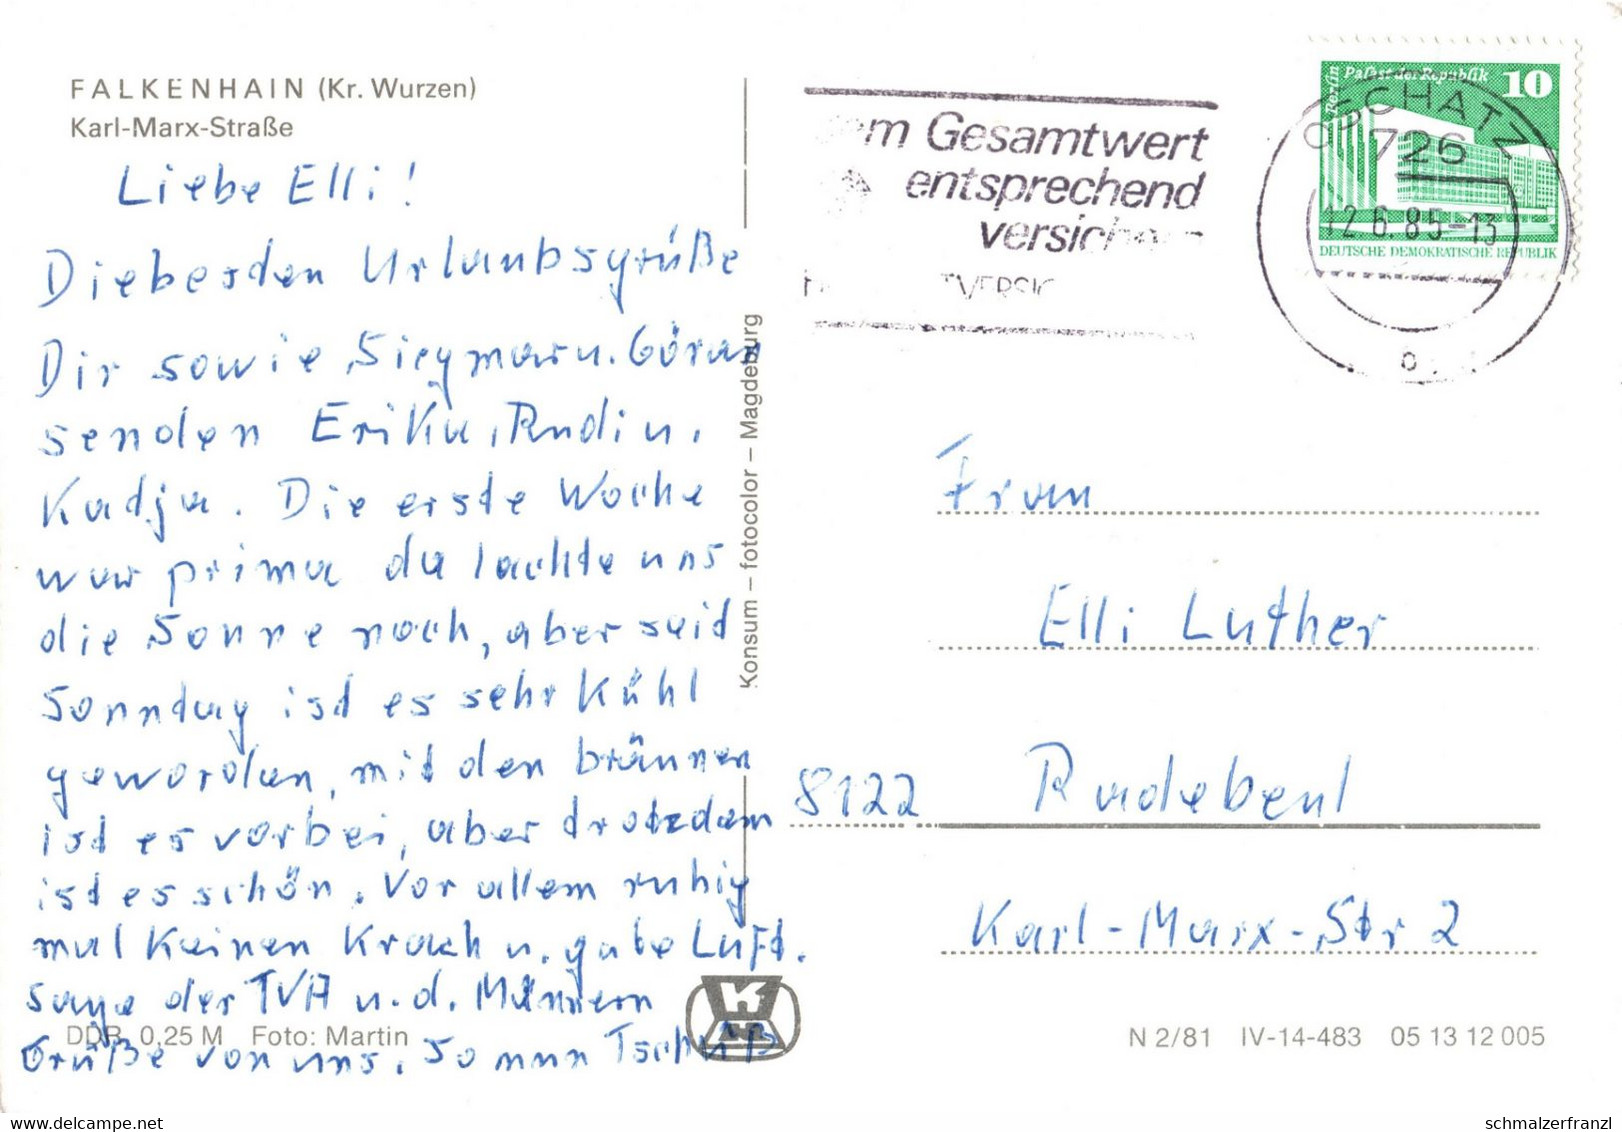 FALKENHAIN (Kr. Wurzen)
Karl-Marx-Straße
Liebe Elli!
Die besten Urlaubsgrüße
Dir sowie Siegmar u. Göran
senden Erika, Rudi u.
Kadja. Die erste Woche
war prima da lachte uns
die Sonne noch, aber seid
Sonntag ist es sehr Kühl
geworden, mit den bräunen
ist es vorbei, aber trotzdem
ist es schön. Vor allem ruhig
mal Keinen Krach u. gute Luft.
Sage der TVA u. d. Männern
Grüße von uns. So nun Tschüß
DDR 0,25 M Foto: Martin
Konsum – fotocolor – Magdeburg
Gesamtwert
entsprechend
Berlin Palast der Republik 10
DEUTSCHE DEMOKRATISCHE REPUBLIK
OSCHATZ
726
12.6.85-13
Frau
Elli Luther
8122 Radebeul
Karl-Marx-Str 2
N 2/81 IV-14-483 05 13 12 005
www.delcampe.net
schmalzerfranzl